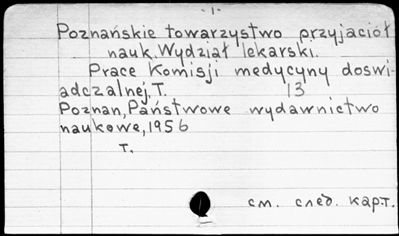 - 1 -
Poznańskie towarzystwo przyjaciół
nauk. Wydział lekarski.
Prace Komisji medycyny doswi-
adczalnej. T. 13
Poznan, Państwowe wydawnictwo
naukowe, 1956
т.
см. след. карт.